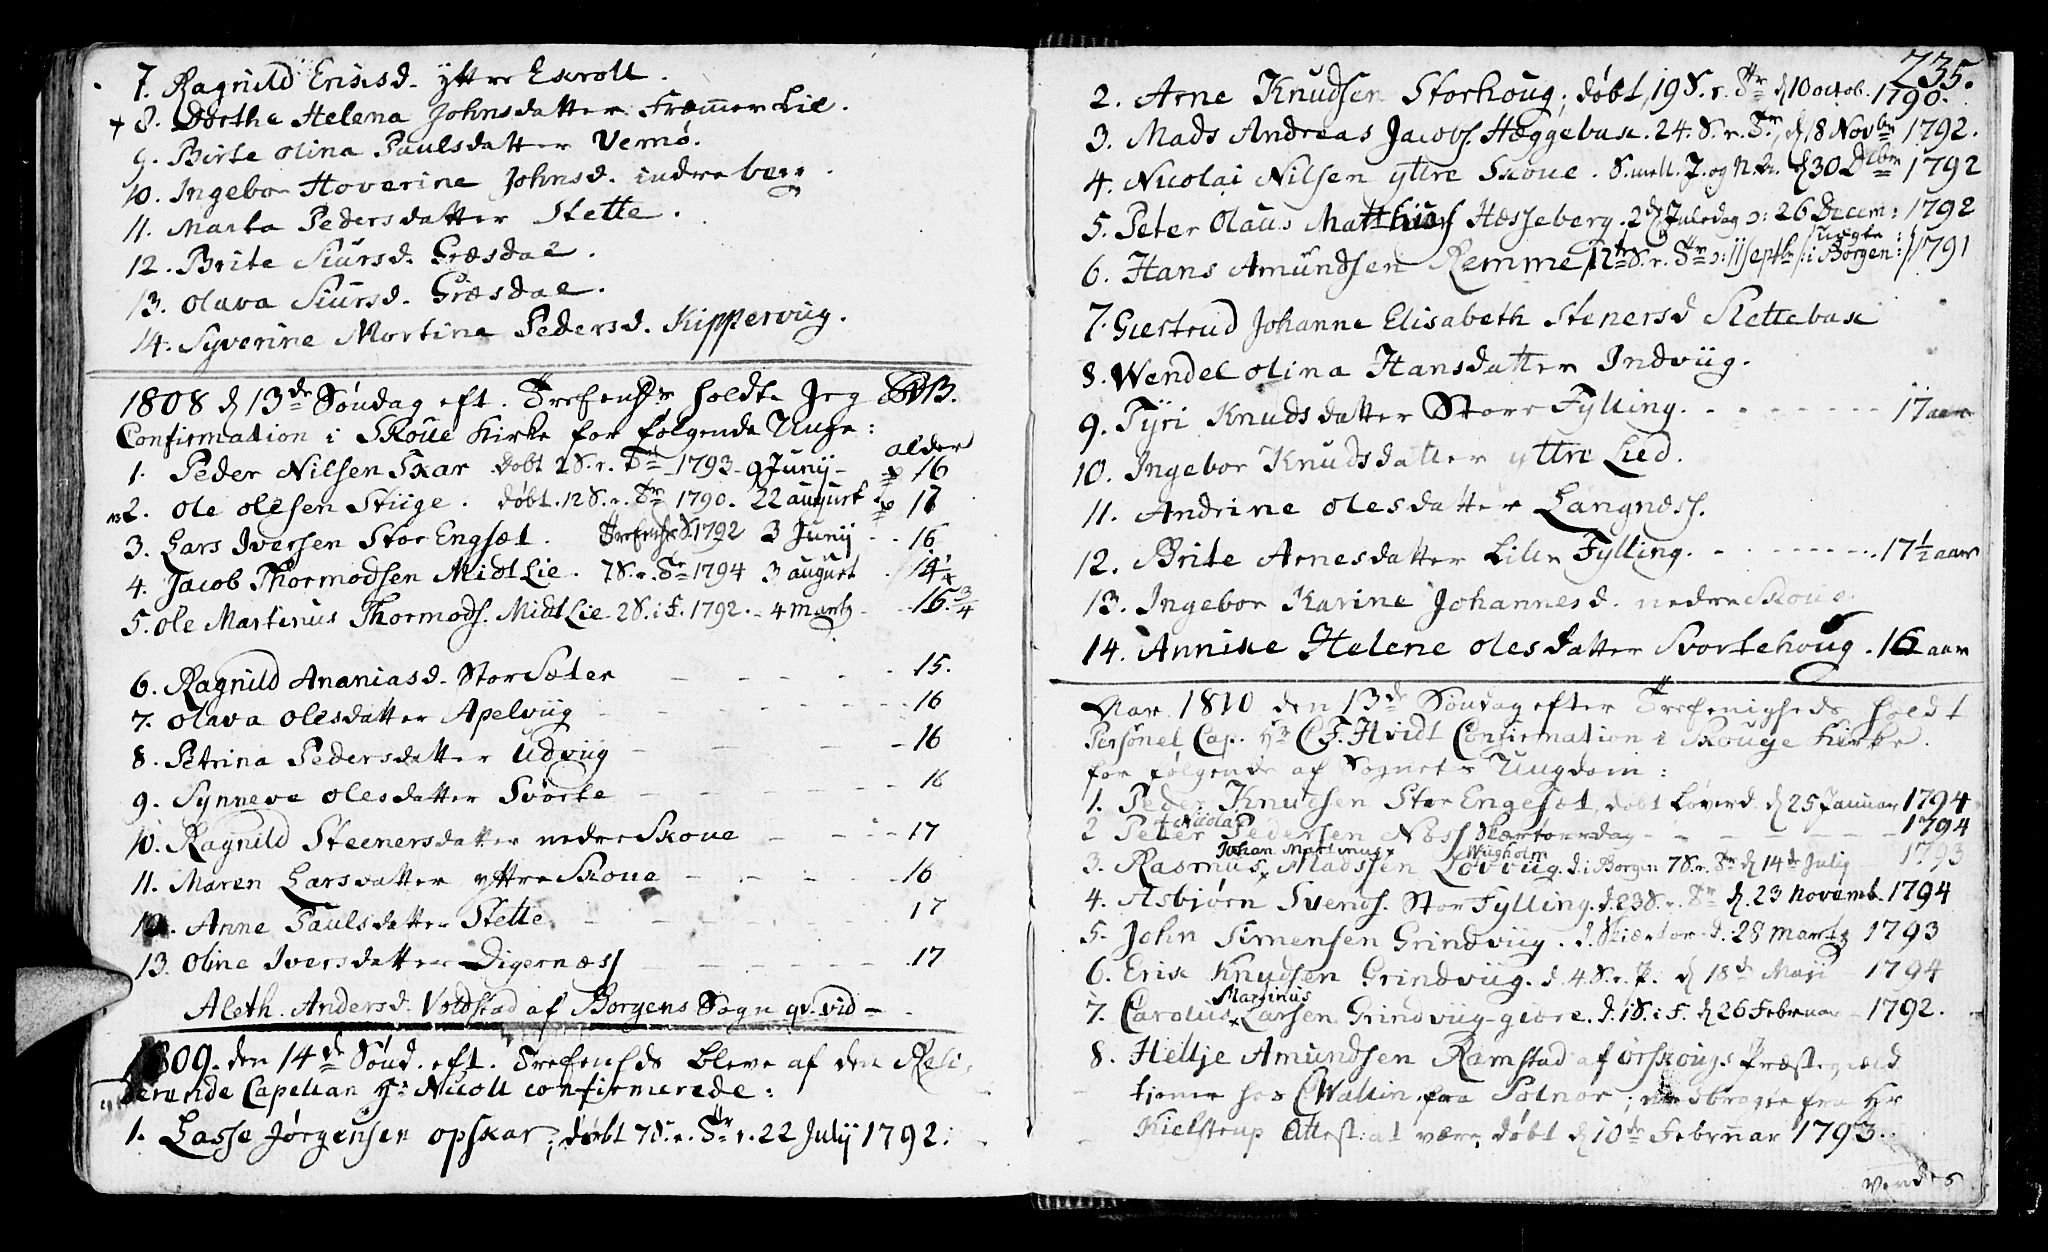 7. Ragnild Erichsd. yttre Exroll.
+ 8. Dorthe Helena Johnsdatter Frammer Lie.
9. Birte Olina Paulsdatter Vemø.
10. Ingebor Hoverine Johnsd. indre berg.
11. Marta Pedersdatter Stette.
12. Brite Siursd. Græsdal.
13. Olava Siursd. Græsdal.
14. Syverine Mortine Pedersd. Kippervig.
1808 d 13de Søndag eft. Trefenhds holdte Jeg
Confirmation i Skoue Kirke for følgende Unge:
alder
1. Peder Nilsen Skar døbt 2 S. r. Tr 1793 - 9 Junij - 16
2. Ole Olesen Stiige. døbt. 12 S. r. Tr 1790. 22 august 17
3. Lars Iversen Stor Engset. Trefenhs S. 1792 3 Junij - 16
4. Jacob Thormodsen Midt Lie. 7 S. r. Tr 1794 3 august 14
5. Ole Martinus Thormods. Midt Lie 2 S. i F. 1792. - 4 Marty - 15. 3/4
6. Ragnild Ananiasd. Stor Sæter - 15.
7. Olava Olesdatter Apelviig - 16
8. Petrina Pedersdatter Udviig - 16
9. Synneve Olesdatter Svorte - 16
10. Ragnild Steenersdatter nedre Skoue - 17
11. Maren Larsdatter yttre Skoue - 16
12. Anne Paulsdatter Stette - 17
13. Oline Iversdatter Digernæs - 17
Aleth. Andersd. Voldstad af Borgens Sogn qv. vid -
1809. den 14de Sønd. eft. Trefenhds bleve af den Resi-
derende Capellan Hr Nicoll confirmerede:
1. Lasse Jørgensen Opskar; døbt 7 S. r. Tr. 22 Julij 1792.
235.
2. Arne Knudsen Storhoug; døbt, 19 S. r. Tr d 10 octob. 1790.
3. Mads Andreas Jacobs. Hæggebak. 24. S. r. Tr, d 18 Novbr 1792.
4. Nicolai Nilsen yttre Skoue. S. mell. J. og N. Aar d 30 Decbr 1792
5. Peter Olaus Matthias Hæsseberg. 2d Juledag ɔ: 26 Decem: 1792
6. Hans Amundsen Remme 12te S. r. Tr ɔ: 11 Septbr /: i Borgen :/ 1791
7. Giertrud Johanne Elisabeth Stenersd Slettebak
8. Wendel Olina Hansdatter Indviig.
9. Tyri Knudsdatter Store Fylling. - 17 aar
10. Ingebor Knudsdatter yttre Lied.
11. Andrine Olesdatter Langness.
12. Brite Arnesdatter Lille Fylling. - 17 1/2 aar
13. Ingebor Karine Johannesd. nedre Skoue.
14. Annike Helene Olesdatter Svortehoug. 16 aar
Aar 1810 den 13de Søndag efter Trefenigheds holdt
Personel Cap. Hr C F. Hvidt Confirmation i Skouge Kirke.
for følgende af Sognets Ungdom:
1. Peder Knudsen Stor Engeset, døbt Løverd. d 25 Januar 1794
Nicolai
2 Peter Pedersen Næss Skærtorsdag - 1794
Johan Martinus Wiigholm
3. Rasmus Madssen Løvviig. d. i Borgen 7 S. r. Tr d 14de Julij 1793
4. Asbjørn Svends. Stor Fylling. d. 23 S. r. Tr d. 23 Novemb. 1794
5. John Simensen Grindviig. d. Skiertorsd. 28 Marty 1793
6. Erik Knudsen Grindviig. d 4. S. r. P. d 18de Maji - 1794
Martinus
7. Carolus Larsen Grindviig-giære. d. 1 S. i F. d 26 Februar - 1792.
8. Helje Amundsen Ramstad af Ørskougs Præstegield
tiener hos C Wallin paa Solnør; medbragte fra Hr
Kielstrup Attest: at være døbt d 10de Februar 1793.
Vendes